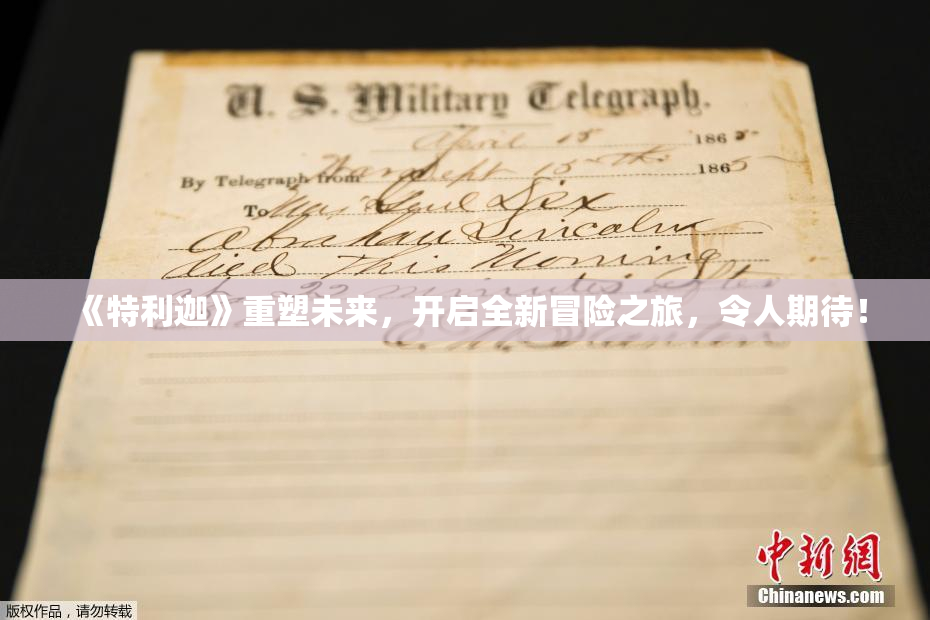 U. S. Military Telegraph.
April 15 1865
By Telegraph from War Dept 15th 1865
To Maj Genl Dix
Abraham Lincoln
died This Morning
at 22 minutes after
《特利迦》重塑未来，开启全新冒险之旅，令人期待！
E. M. Stanton
中新网
Chinanews.com
版权作品，请勿转载